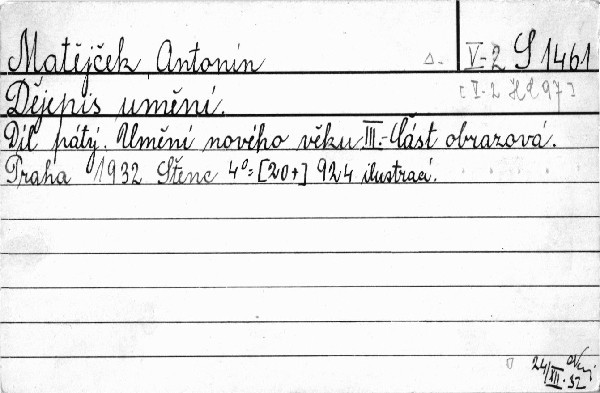 Matějček Antonín V-2 S 1461
Dějepis umění. [I-2 H297]
Díl pátý. Umění nového věku III.-Část obrazová.
Praha 1932 Štenc 4°= [20+] 924 ilustrací.
24/XII.32